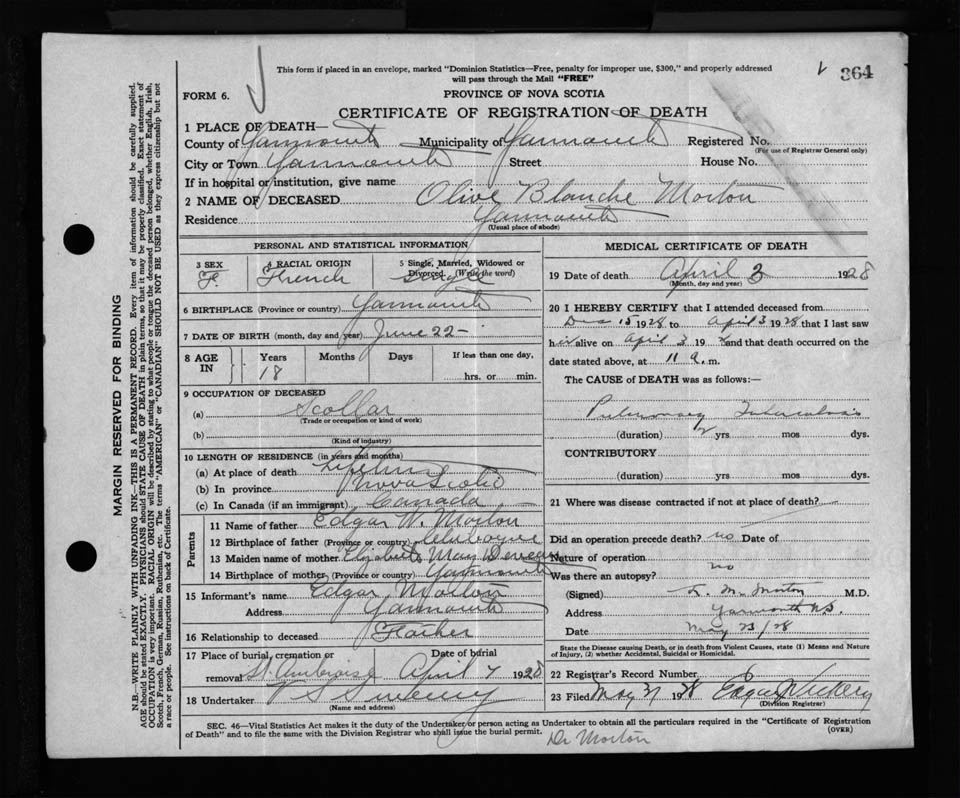 This form if placed in an envelope, marked "Dominion Statistics—Free, penalty for improper use, $300," and properly addressed
will pass through the Mail "FREE"
364
FORM 6.
PROVINCE OF NOVA SCOTIA
CERTIFICATE OF REGISTRATION OF DEATH
1 PLACE OF DEATH—
County of Yarmouth Municipality of Yarmouth Registered No.
(For use of Registrar General only)
City or Town Yarmouth Street House No.
If in hospital or institution, give name
2 NAME OF DECEASED Olive Blanche Morton
Residence Yarmouth
(Usual place of abode)
PERSONAL AND STATISTICAL INFORMATION
3 SEX 4 RACIAL ORIGIN 5 Single, Married, Widowed or
Divorced. (Write the word)
F. French Single
6 BIRTHPLACE (Province or country) Yarmouth
7 DATE OF BIRTH (month, day and year) June 22 -
8 AGE IN Years Months Days If less than one day,
18 hrs. or min.
9 OCCUPATION OF DECEASED
(a) Scollar
(Trade or occupation or kind of work)
(b)
(Kind of industry)
10 LENGTH OF RESIDENCE (in years and months)
(a) At place of death Lifetime
(b) In province Nova Scotia
(c) In Canada (if an immigrant) Canada
Parents
11 Name of father Edgar W. Morton
12 Birthplace of father (Province or country)
13 Maiden name of mother Elizabeth May
14 Birthplace of mother (Province or country) Yarmouth
15 Informant's name Edgar Morton
Address Yarmouth
16 Relationship to deceased Father
17 Place of burial, cremation or Date of burial
removal St Ambroise April 7 1928
18 Undertaker V S Sweeny
(Name and address)
MEDICAL CERTIFICATE OF DEATH
19 Date of death April 3 1928
(Month, day and year)
20 I HEREBY CERTIFY that I attended deceased from
Dec 15 1928 to April 3 1928 that I last saw
h alive on April 3 19 and that death occurred on the
date stated above, at 11 a. m.
The CAUSE of DEATH was as follows:—
Pulmonary Tuberculosis
(duration) 2 yrs mos dys.
CONTRIBUTORY
(duration) yrs mos dys.
21 Where was disease contracted if not at place of death?
Did an operation precede death? no Date of
Nature of operation
Was there an autopsy? no
(Signed) L. M. Morton M.D.
Address Yarmouth N.S.
Date May 23/28
State the Disease causing Death, or in death from Violent Causes, state (1) Means and Nature
of Injury, (2) whether Accidental, Suicidal or Homicidal.
22 Registrar's Record Number
23 Filed May 31 1928
(Division Registrar)
SEC. 46—Vital Statistics Act makes it the duty of the Undertaker or person acting as Undertaker to obtain all the particulars required in the "Certificate of Registration
of Death" and to file the same with the Division Registrar who shall issue the burial permit.
(OVER)
Dr Morton
MARGIN RESERVED FOR BINDING
N.B.—WRITE PLAINLY WITH UNFADING INK—THIS IS A PERMANENT RECORD. Every item of information should be carefully supplied.
AGE should be stated EXACTLY. PHYSICIANS should STATE CAUSE OF DEATH in plain terms, so that it may be properly classified. Exact statement of
OCCUPATION is very important. RACIAL ORIGIN will be described by stating to what people or tongue the deceased person belonged, whether English, Irish,
Scotch, French, German, Russian, Ruthenian, etc. The terms "AMERICAN" or "CANADIAN" SHOULD NOT BE USED as they express citizenship but not
a race or people. See instructions on back of Certificate.